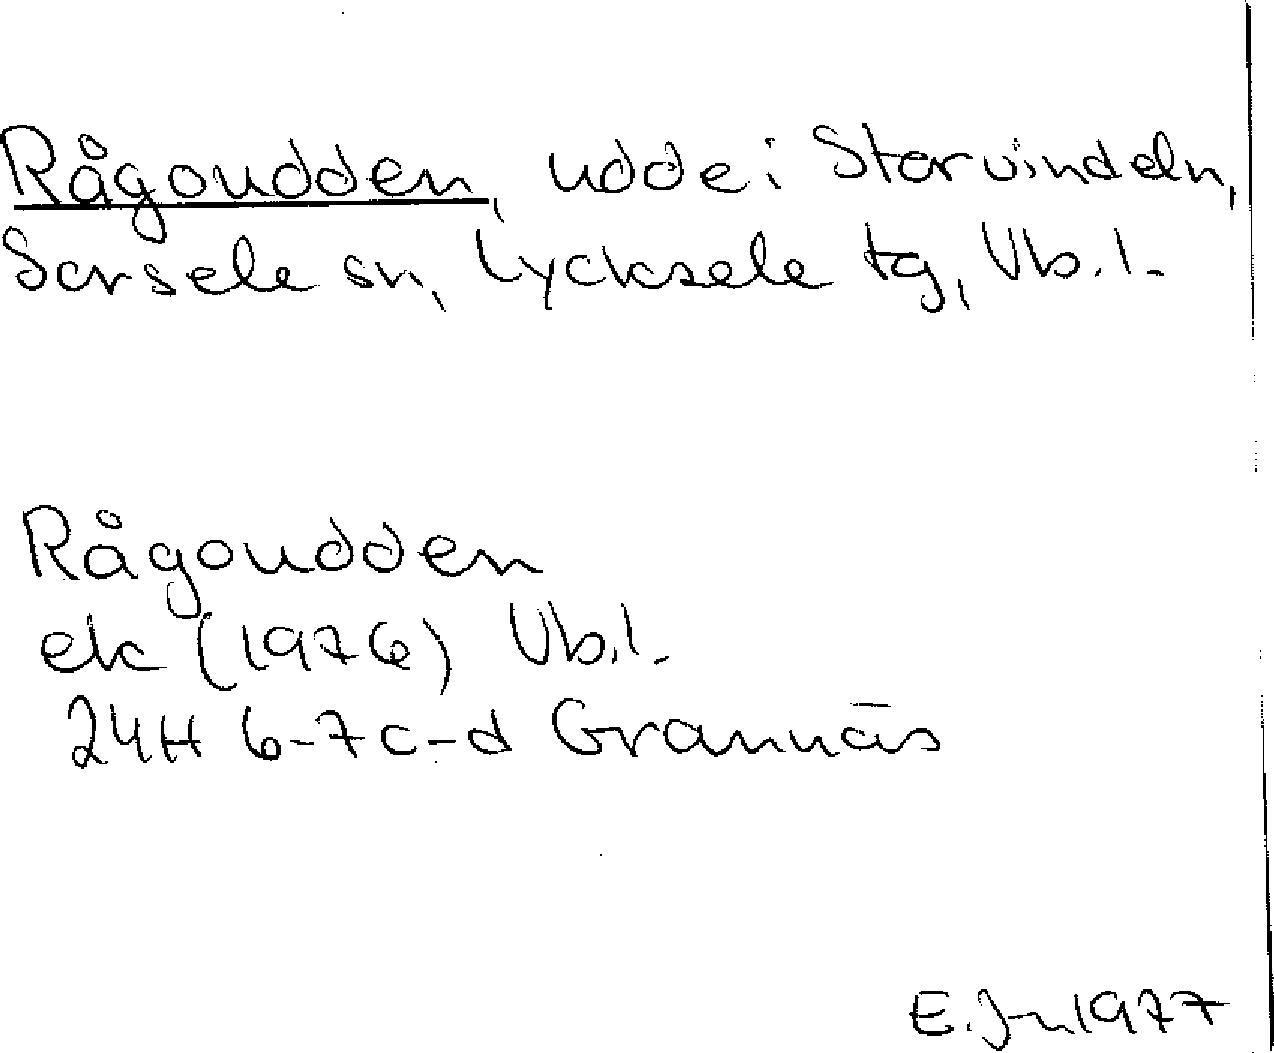 Rågoudden, udde i Storvindeln,
Sorsele sn, Lycksele tg, Vb.l.
Rågoudden
ek (1976) Vb.l.
24H 6-7c-d Grannäs
E. J-n 1977